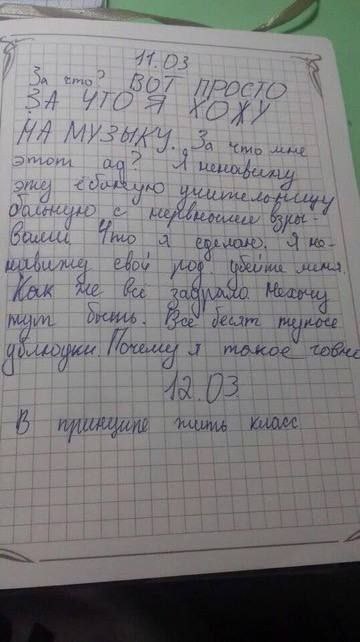 11.03
За что? ВОТ ПРОСТО
ЗА ЧТО Я ХОЖУ
НА МУЗЫКУ. За что мне
этот ад? Я ненавижу
эту ёбаную учительницу
больную с нервными взры-
вами Что я сделаю. Я не-
навижу свой род. убейте меня.
Как же всё задрало. Нехочу
тут быть. Все бесят тупые
ублюдки. Почему я такое говно
12.03
В принципе жить класс